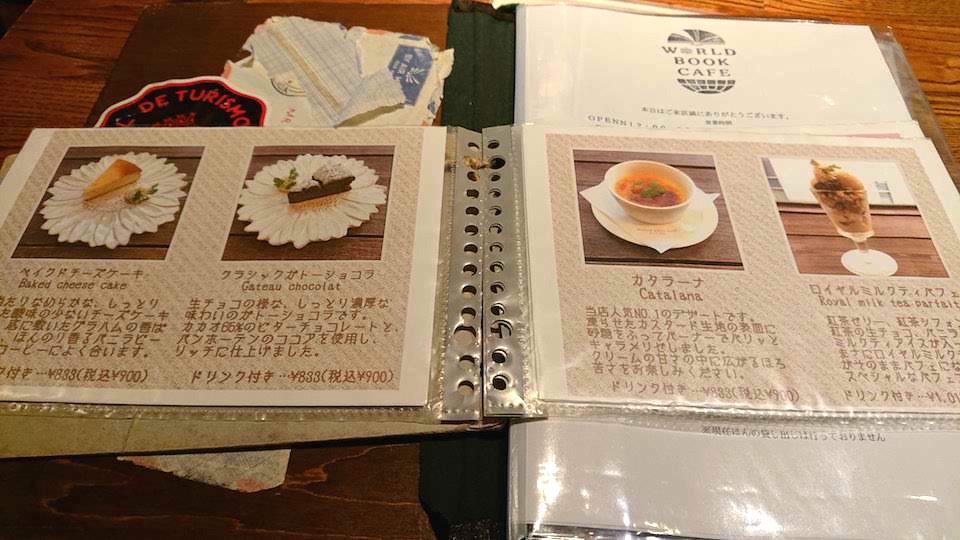 DE TURISMO
WORLD
BOOK
CAFE
本日はご来店誠にありがとうございます。
営業時間
ベイクドチーズケーキ
Baked cheese cake
なめらかな、しっとり
酸味の少ないチーズケーキ
底に敷いたグラハムの香ば
ほんのり香るバニラビー
コーヒーによく合います。
ドリンク付き…¥833(税込¥900)
クラシックガトーショコラ
Gateau chocolat
生チョコの様な、しっとり濃厚な
味わいのガトーショコラです。
カカオ66%のビターチョコレートと、
バンホーテンのココアを使用し、
リッチに仕上げました。
ドリンク付き…¥833(税込¥900)
カタラーナ
Catalana
当店人気NO.1のデザートです。
凍らせたカスタード生地の表面に
砂糖をふってバーナーでパリッと
キャラメリゼしました。
クリームの甘さの中に広がるほろ
苦さをお楽しみください。
ドリンク付き…¥833(税込¥900)
ロイヤルミルクティパフェ
Royal milk tea parfait
紅茶ゼリー、紅茶シフォ
紅茶の生チョコ
ミルクティアイスが入っ
まさにロイヤルミルク
がそのままパフェにな
スペシャルなパフェ
ドリンク付き…¥1,01
※現在ほんの貸し出しは行っておりません